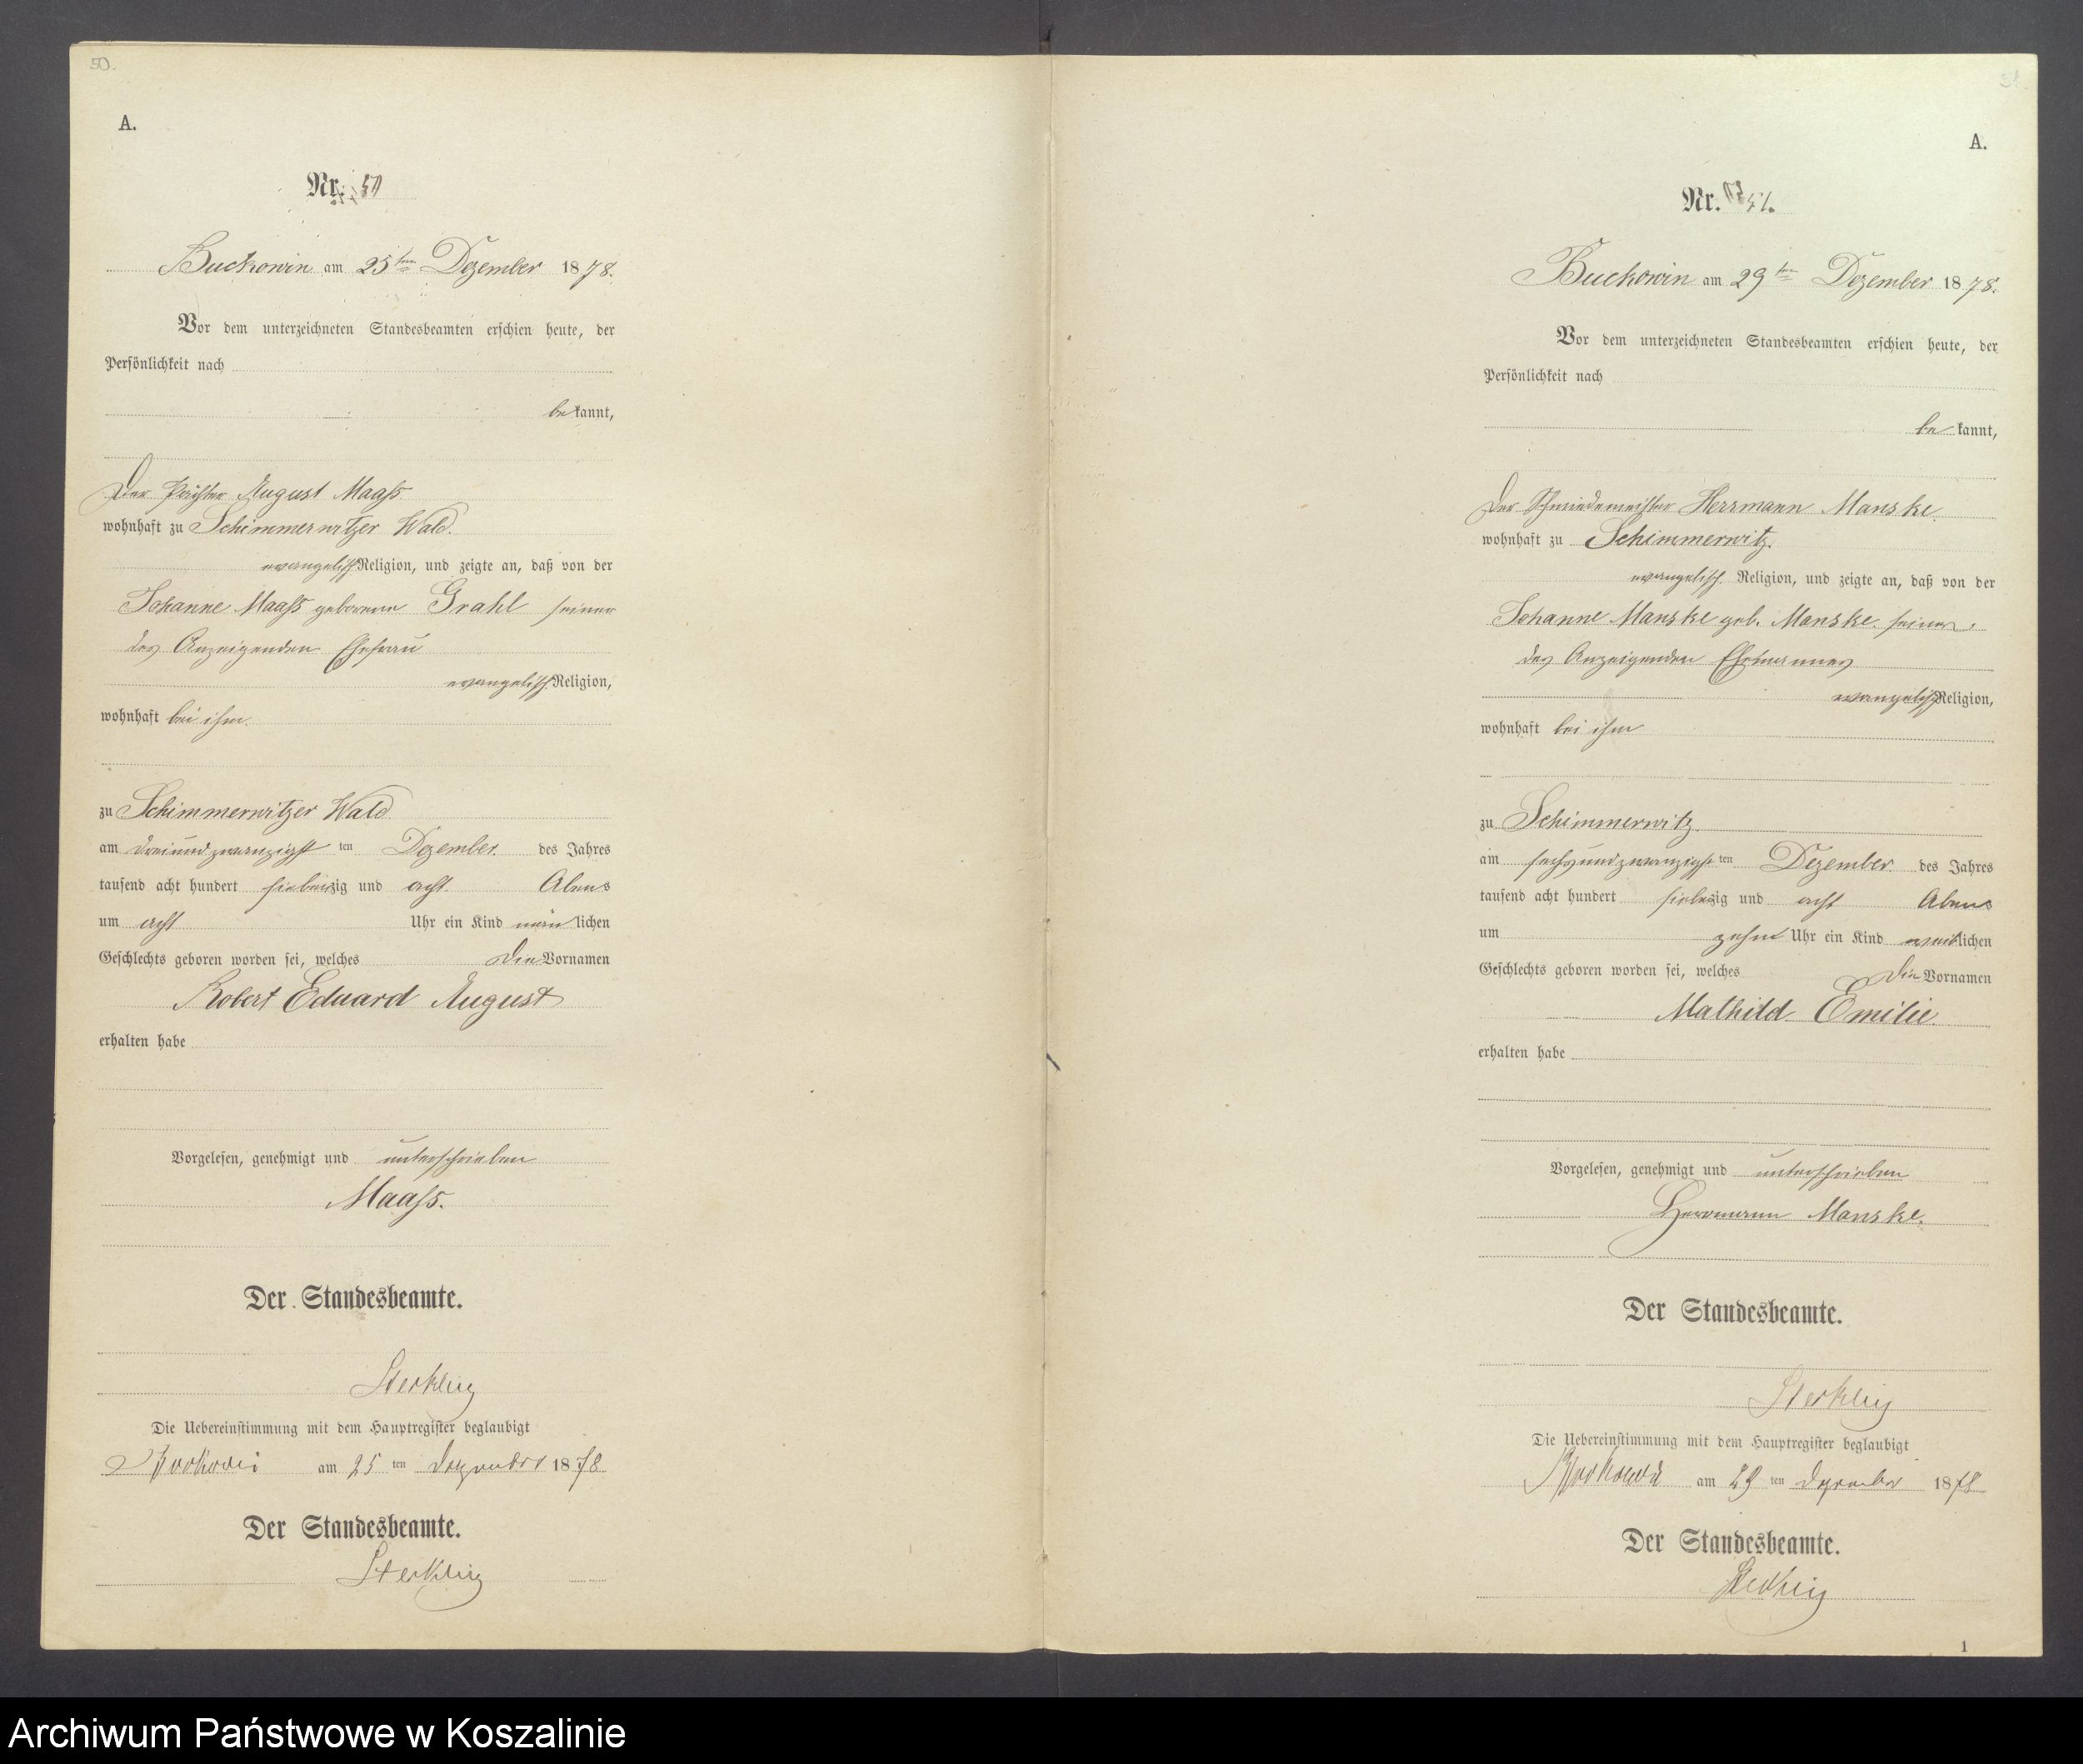 50.
A.
Nr. 50
Buckowin am 25ten Dezember 1878.
Vor dem unterzeichneten Standesbeamten erschien heute, der
Persönlichkeit nach
be kannt,
Der Pächter August Maaß
wohnhaft zu Schimmerwitzer Wald.
evangelisch Religion, und zeigte an, daß von der
Johanne Maaß geborene Grahl seiner
des Anzeigenden Ehefrau
evangelisch. Religion,
wohnhaft bei ihm.
zu Schimmerwitzer Wald
am dreiundzwanzigst ten Dezember. des Jahres
tausend acht hundert siebenzig und acht Abens
um acht Uhr ein Kind män lichen
Geschlechts geboren worden sei, welches die Vornamen
Robert Eduard August
erhalten habe
Vorgelesen, genehmigt und unterschrieben
Maaß.
Der Standesbeamte.
Die Uebereinstimmung mit dem Hauptregister beglaubigt
am 25 ten Dezember 1878
Der Standesbeamte.
51.
A.
Nr. 51.
Buckowin am 29ten Dezember 1878.
Vor dem unterzeichneten Standesbeamten erschien heute, der
Persönlichkeit nach
be kannt,
Der Schmiedemeister Herrmann Manske.
wohnhaft zu Schimmerwitz.
evangelisch. Religion, und zeigte an, daß von der
Johanne Manske geb. Manske. seiner,
des Anzeigenden
evangelisch Religion,
wohnhaft bei ihm
zu Schimmerwitz
am sechsundzwanzigs ten Dezember. des Jahres
tausend acht hundert siebzig und acht Abens
um zehn Uhr ein Kind weiblichen
Geschlechts geboren worden sei, welches die Vornamen
Mathild Emilie.
erhalten habe
Vorgelesen, genehmigt und unterschrieben
Herrmann Manske.
Der Standesbeamte.
Die Uebereinstimmung mit dem Hauptregister beglaubigt
am 29 ten Dezember 1878
Der Standesbeamte.
1
Archiwum Państwowe w Koszalinie